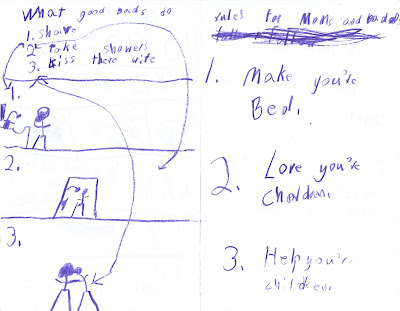 What good dads do
1. shave
2. take showers
3. kiss there wife
1.
2.
3.
rules for Moms and dads
1. Make you're
Bed.
2. Love you're
Children.
3. Help you're
children.